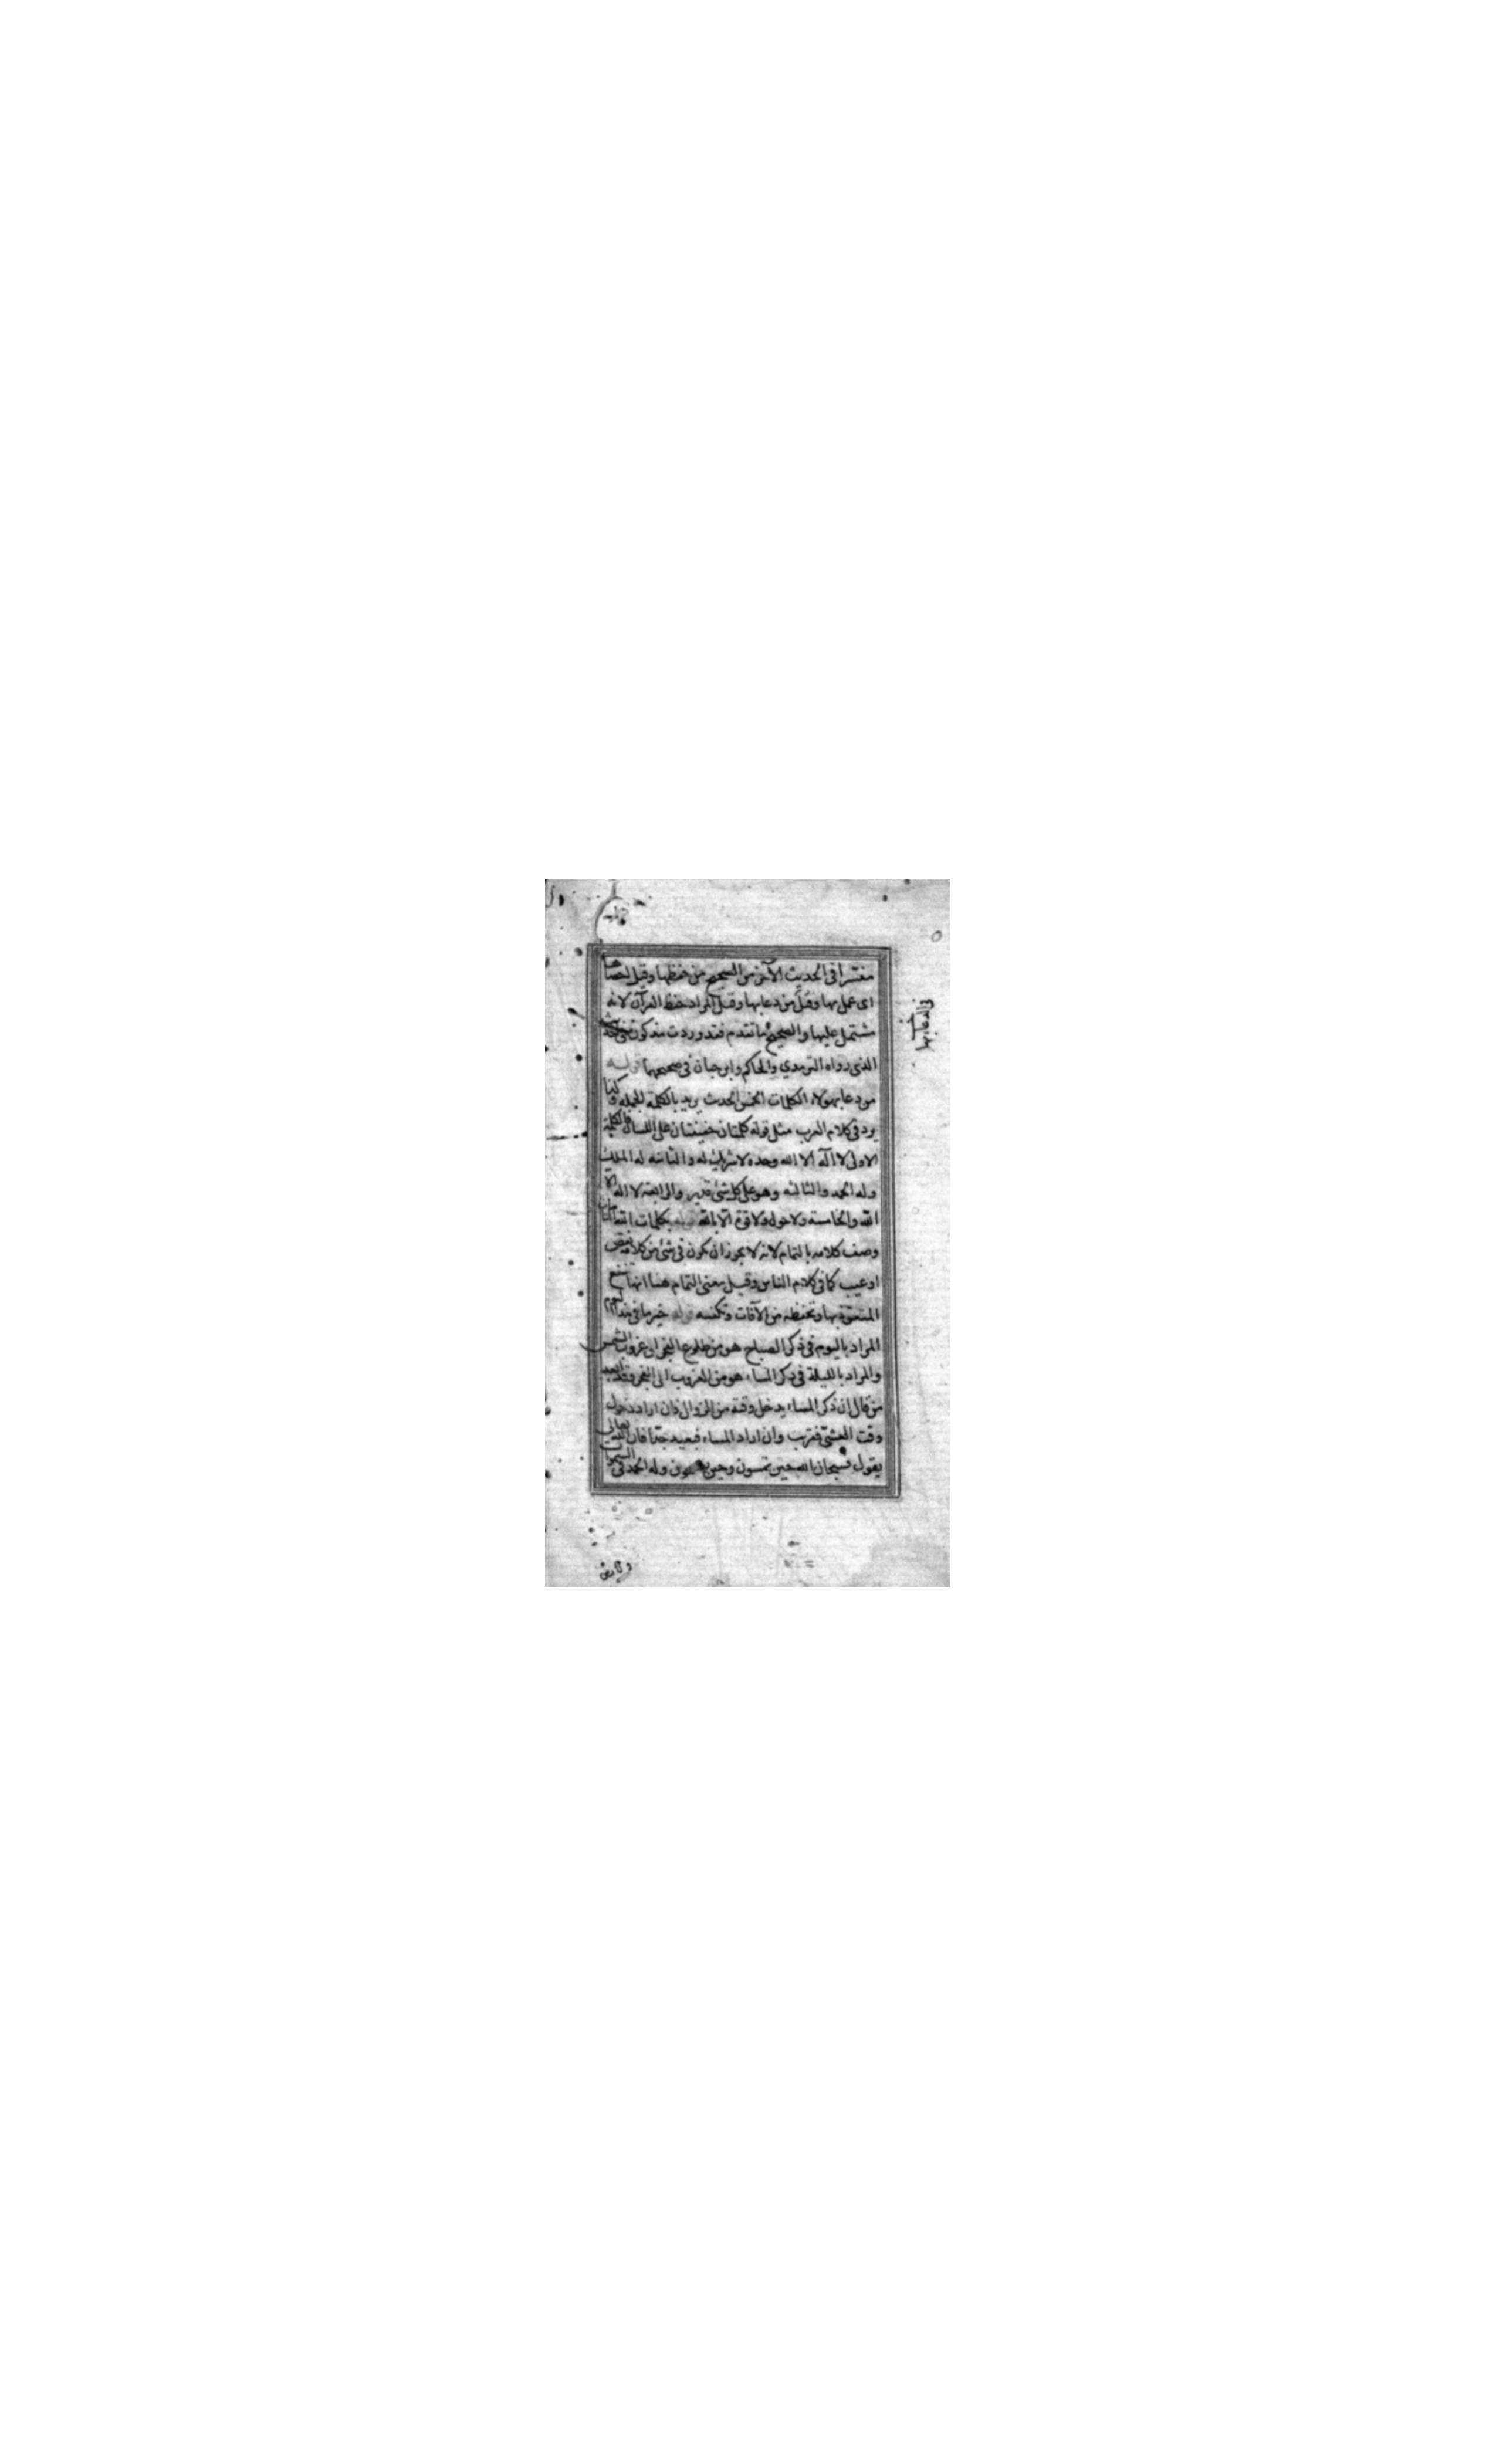 مفسرا فى الحديث الآخر من الصحيح من حفظها وقيل احصاها
اى عمل بها وقيل من دعا بها وقيل المراد حفظ القرآن لانه
مشتمل عليها والصحيح ما تقدم فقد وردت مذكورة فى الحديث
الذى رواه الترمذي والحاكم وابن حبان فى صحيحهما قوله
من دعا بهولاء الكلمات الخمس الحديث يريد بالكلمة الجملة وكذا
يرد فى كلام العرب مثل قوله كلمتان خفيفتان على اللسان فالكلمة
الاولى لا اله الا الله وحده لا شريك له والثانية له الملك
وله الحمد والثالثة وهو على كل شئ قدير والرابعة لا اله الا
الله والخامسة ولا حول ولا قوة الا بالله قوله بكلمات الله التامات
وصف كلامه بالتمام لانه لا يجوز ان يكون فى شئ من كلامه نقص
او عيب كما فى كلام الناس وقيل معنى التمام هنا انها تنفع
المتعوذ بها وتحفظه من الآفات وتكفيه قوله خير ما فى هذا اليوم
المراد باليوم فى ذكر الصباح هو من طلوع الفجر الى غروب الشمس
والمراد بالليلة فى ذكر المساء هو من الغروب الى الفجر وقد ابعد
من قال ان ذكر المساء يدخل وقته من الزوال فان اراد دخول
وقت العشى فقريب وان اراد المساء فبعيد جدا فان الله تعالى
يقول فسبحان الله حين تمسون وحين تصبحون وله الحمد فى السموات